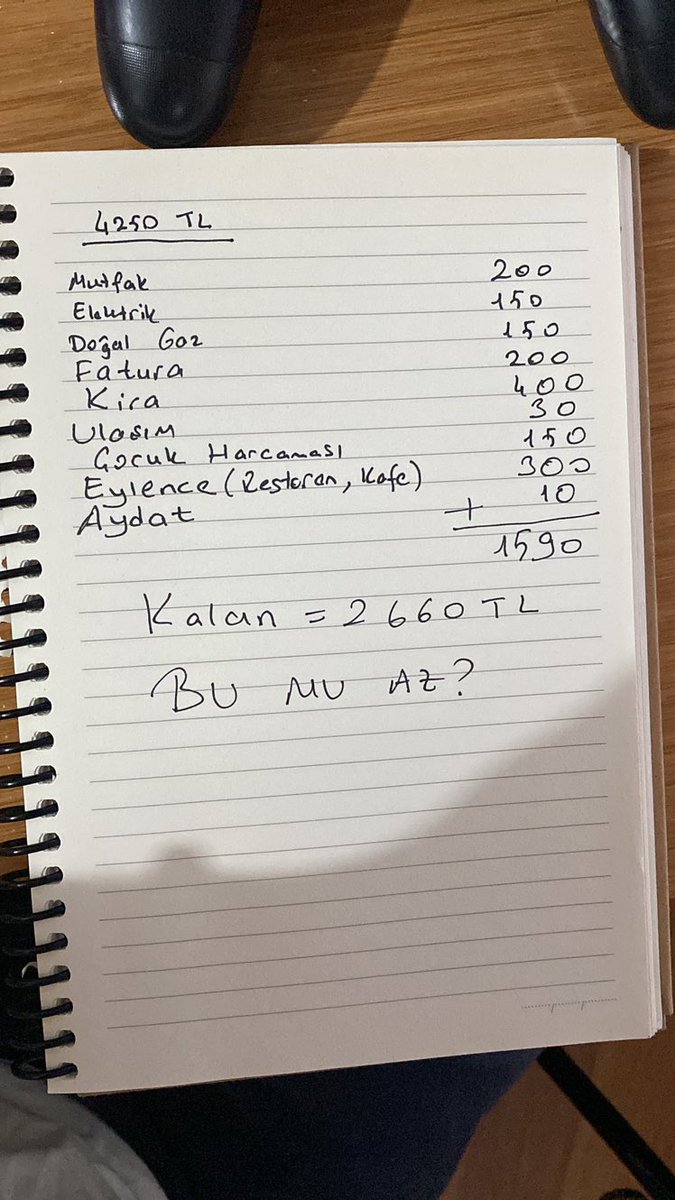 4250 TL
Mutfak 200
Elektrik 150
Doğal Gaz 150
Fatura 200
Kira 400
Ulaşım 30
Çocuk Harcaması 150
Eylence (Restoran, Kafe) 300
Aydat + 10
1590
Kalan = 2660 TL
BU MU AZ?